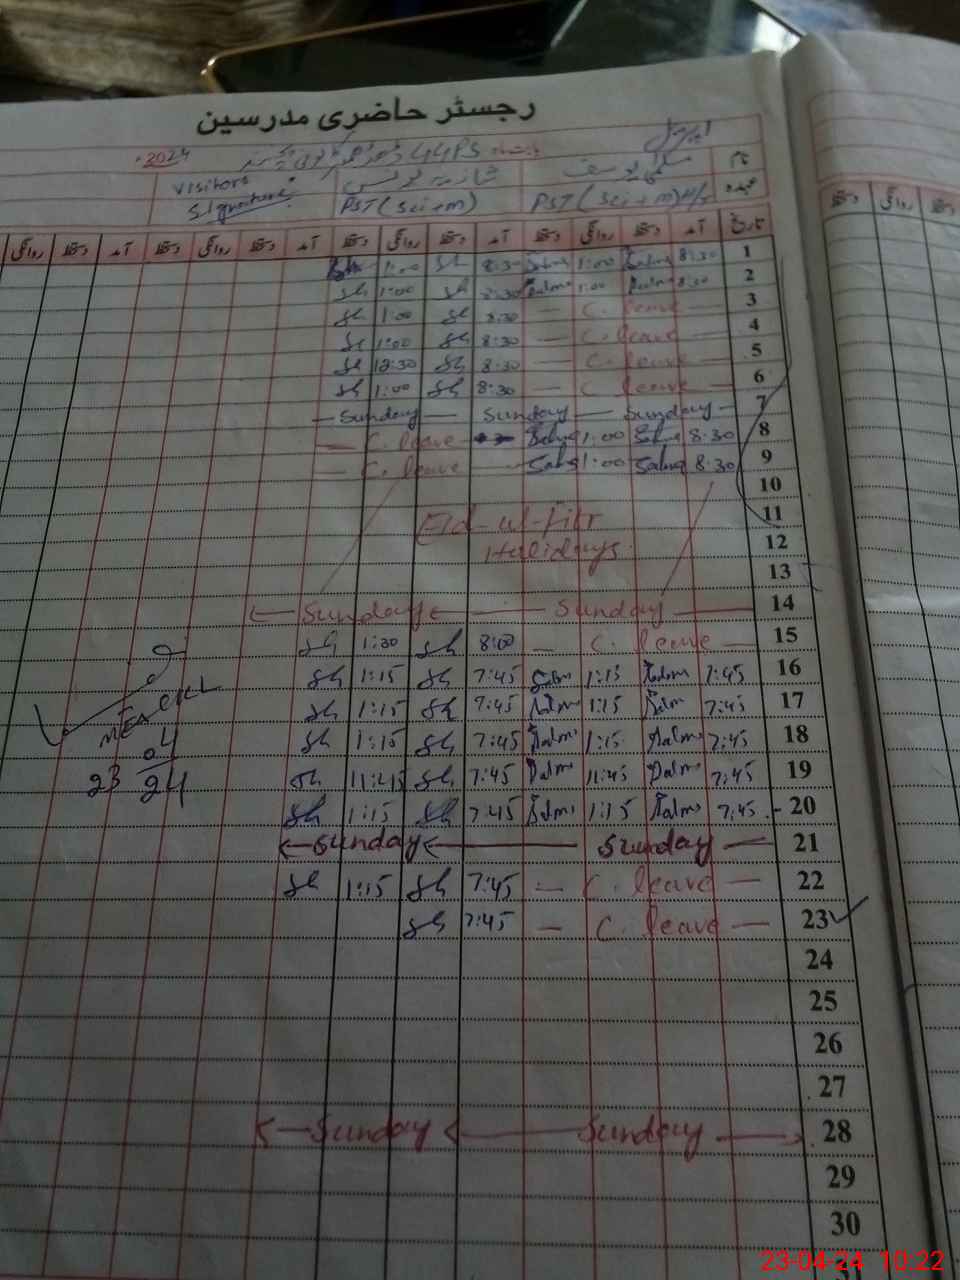 رجسٹر حاضری مدرسین
اپریل 2024
نام سلمیٰ یوسف شازیہ یونس Visitors
عہدہ PST (Sci+m) H/T PST (Sci+m) Signature
تاریخ آمد دستخط روانگی دستخط آمد دستخط روانگی دستخط آمد دستخط روانگی دستخط آمد دستخط روانگی
1 8:30 Salma 1:00 Salma 8:30 Sh 1:00 Sh
2 8:30 Salma 1:00 Salma 8:30 Sh 1:00 Sh
3 — C. leave — 8:30 Sh 1:00 Sh
4 — C. leave — 8:30 Sh 1:00 Sh
5 — C. leave — 8:30 Sh 12:30 Sh
6 — C. leave — 8:30 Sh 1:00 Sh
7 — Sunday — Sunday — Sunday —
8 8:30 Salma 1:00 Salma — C. leave —
9 8:30 Salma 1:00 Salma — C. leave —
10
11 Eid-ul-Fitr
12 Halidays.
13
14 — Sunday — Sunday —
15 — C. leave — 8:00 Sh 1:30 Sh
16 7:45 Salma 1:15 Salma 7:45 Sh 1:15 Sh
17 7:45 Salma 1:15 Salma 7:45 Sh 1:15 Sh
18 7:45 Salma 1:15 Salma 7:45 Sh 1:15 Sh
19 7:45 Salma 11:45 Salma 7:45 Sh 11:45 Sh
20 7:45 Salma 1:15 Salma 7:45 Sh 1:15 Sh
21 — Sunday — Sunday —
22 — C. leave — 7:45 Sh 1:15 Sh
23 — C. leave — 7:45 Sh
24
25
26
27
28 — Sunday — Sunday —
29
30
MEA
23 04
24
23-04-24 10:22